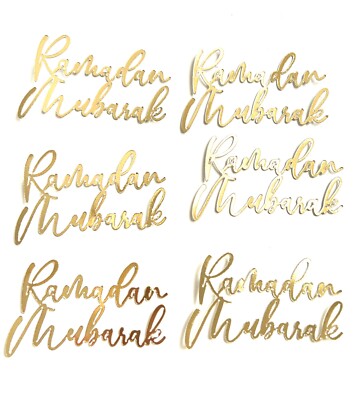 Ramadan
Mubarak
Ramadan
Mubarak
Ramadan
Mubarak
Ramadan
Mubarak
Ramadan
Mubarak
Ramadan
Mubarak